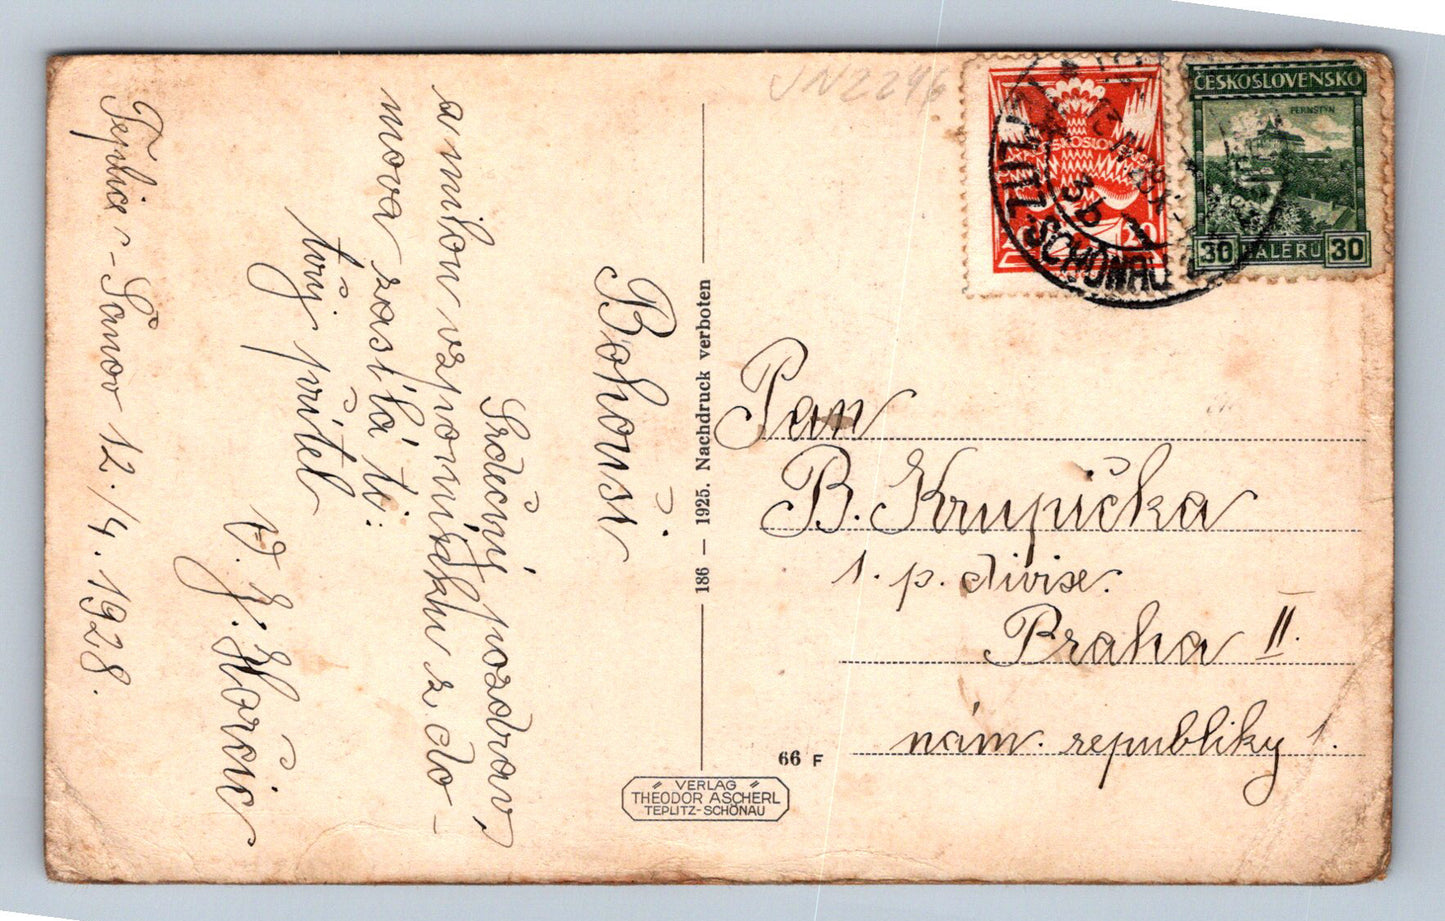 JN2246
ČESKOSLOVENSKO
PERNŠTÝN
30 HALÉŘŮ 30
ČESKOSLOVENSKO
20
TEPLITZ-SCHÖNAU
3b
Teplice - Šanov 12./4. 1928.
Bohouši
Srdečný pozdrav,
a milou vzpomínku z do-
mova zasílá ti:
tvůj přítel
186 — 1925. Nachdruck verboten
Pan
B. Krupička
1. p. divise.
Praha II.
nám. republiky 1.
66 F
VERLAG
THEODOR ASCHERL
TEPLITZ-SCHÖNAU